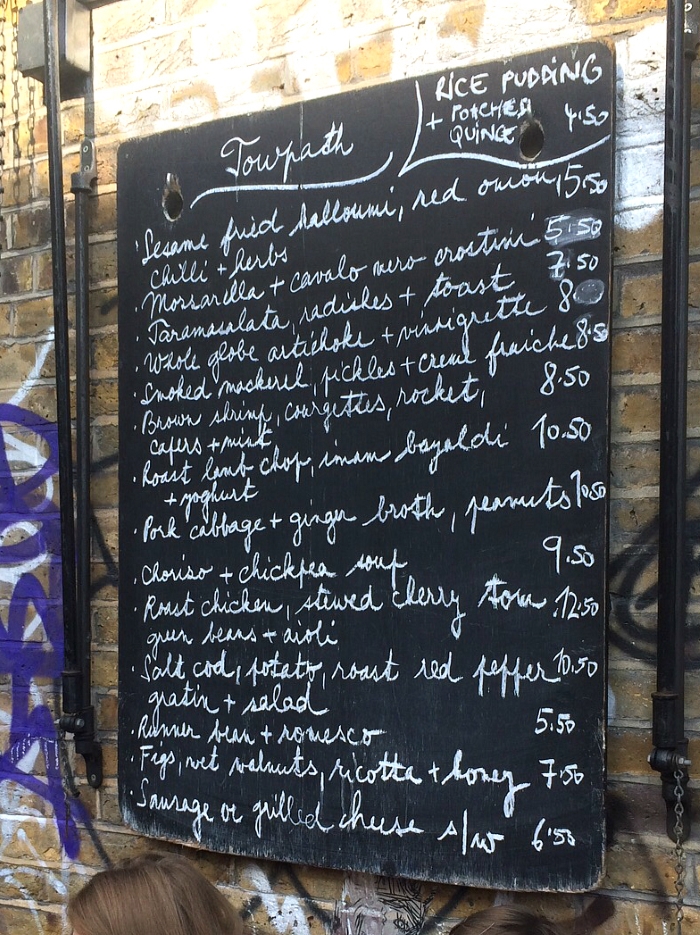 Towpath
RICE PUDDING
+ POACHED
QUINCE 4.50
· Sesame fried halloumi, red onion, 15.50
chilli + herbs
· Morsarella + cavalo nero crostini 5.50
· Taramasalata, radishes + toast 7.50
· Whole globe artichoke + vinaigrette 8
· Smoked mackerel, pickles + creme fraiche 8.50
· Brown shrimp, courgettes, rocket, 8.50
capers + mint
· Roast lamb chop, imam bayaldi 10.50
+ yoghurt
· Pork cabbage + ginger broth, peanuts 10.50
· Choriso + chickpea soup 9.50
· Roast chicken, stewed cherry tom. 12.50
green beans + aioli
· Salt cod, potato, roast red pepper 10.50
gratin + salad
· Runner bean + romesco 5.50
· Figs, wet walnuts, ricotta + honey 7.50
· Sausage or grilled cheese s/w 6.50